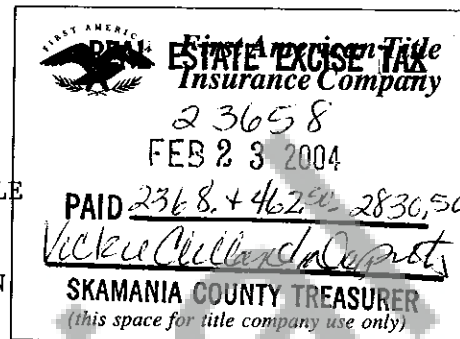 FIRST AMERICAN
First American Title
REAL ESTATE EXCISE TAX
Insurance Company
23658
FEB 23 2004
LE
PAID 2368. + 462.50 2830,50
Vickie Clelland Deputy
N
SKAMANIA COUNTY TREASURER
(this space for title company use only)